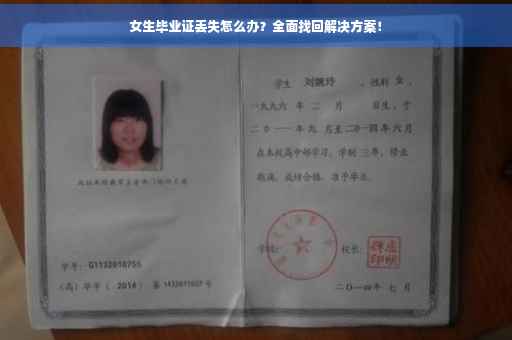 女生毕业证丢失怎么办？全面找回解决方案！
学生 刘婉玲 ，性别 女 ，
一九九六 年 二 月 日生，于
二0一一年九 月至二0一四年六月
在本校高中部学习，学制 三年，修业
期满，成绩合格，准予毕业。
学校： 校长：
二〇一四年 七 月
学号：G1132010755
（高）毕字（ 2014 ）第 1432011027 号